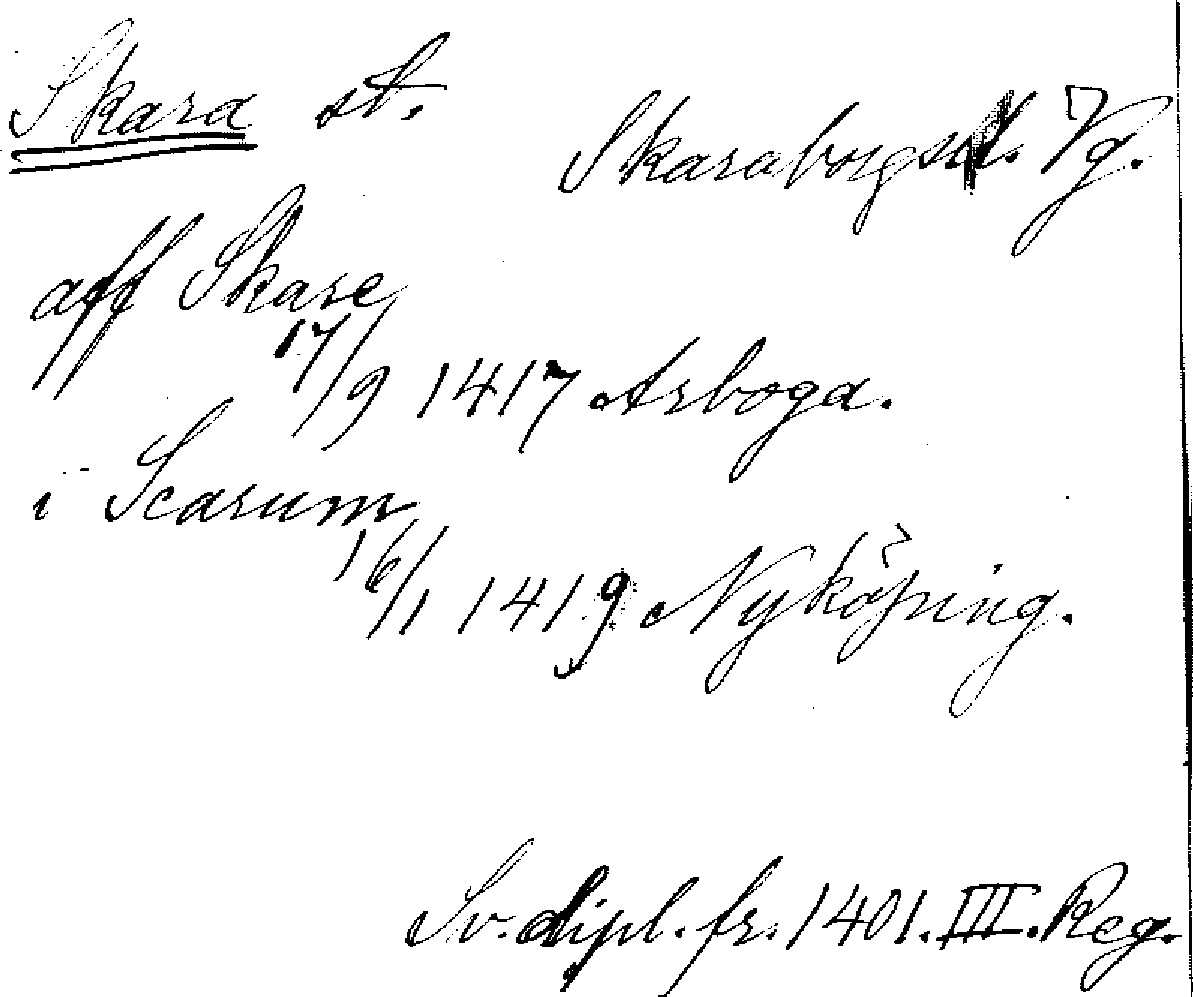 Skara st.
Skaraborgs l. Vg.
aff Skare
17/9 1417 Arboga.
i Scarum
16/1 1419 Nyköping.
Sv. dipl. fr. 1401. III. Reg.